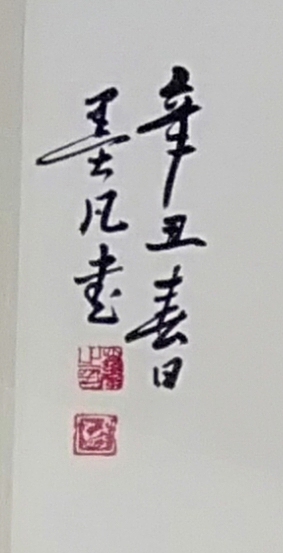 辛丑春日
墨凡書